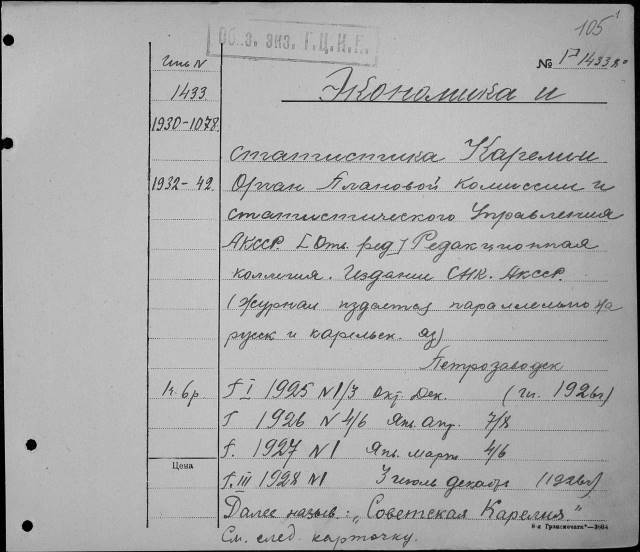 105
Об. з. экз. Г.Ц.К.Б.
Инв N
№ 14338
1433
Экономика и
1930-1078
статистика Карелии
1932-42
Орган Плановой комиссии и
статистического Управления
АКССР. [Отв. ред] Редакционная
коллегия. Издание СНК. АКССР.
(Журнал издается параллельно на
русск и карельск. яз)
Петрозаводск
К. 6р
Г I 1925 N 1/3 окт. Дек. (1926г)
Г 1926 N 4/6 Янв. апр. 7/8
Г. 1927 N 1 Янв. март 4/6
Цена
Г. III 1928 N1 декабрь
Далее назыв.: "Советская Карелия."
См. след. карточку.